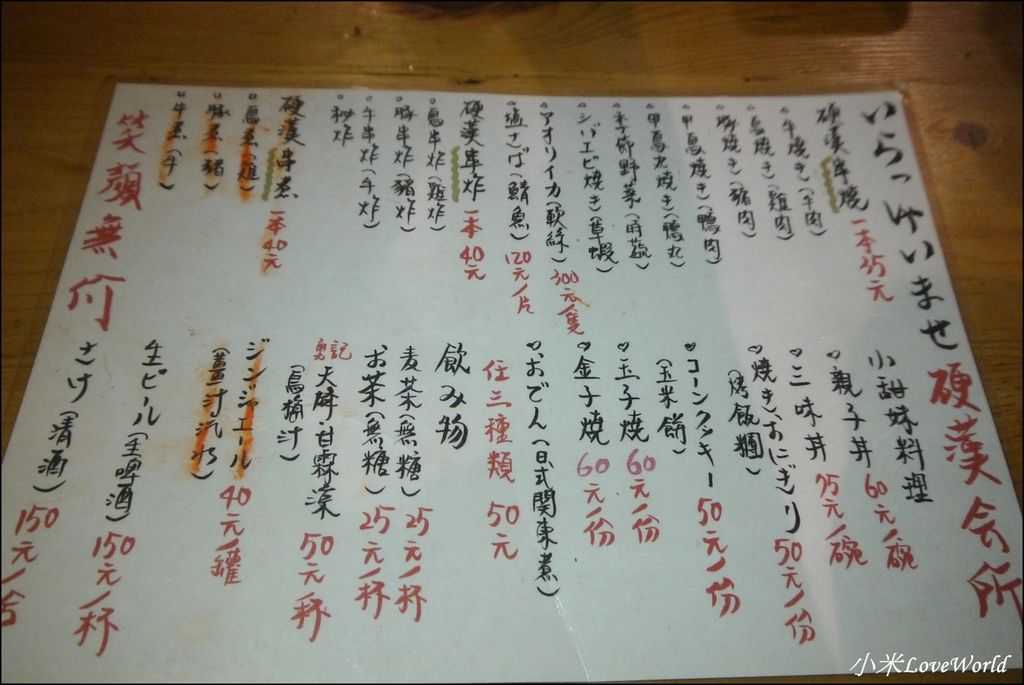 いらっしゃいませ
硬漢会所
硬漢串燒 一本35元
牛燒き(牛肉)
鳥燒き(雞肉)
豚燒き(豬肉)
甲鳥燒き(鴨肉)
甲鳥丸燒き(鴨丸)
季節野菜(時蔬)
シバエビ燒き(草蝦)
アオリイカ(軟絲) 300元/隻
塩さば(鯖魚) 120元/片
硬漢串炸 一本40元
鳥串炸(雞炸)
豚串炸(豬炸)
牛串炸(牛炸)
秘炸
硬漢串煮 一本40元
鳥煮(雞)
豚煮(豬)
牛煮(牛)
笑顏無価
小甜妹料理
親子丼 60元/碗
三味丼 75元/碗
燒き.おにぎり 50元/份
(烤飯糰)
コーンクッキー 50元/份
(玉米餅)
玉子燒 60元/份
金子燒 60元/份
おでん(日式関東煮)
任三種類 50元
飲み物
麦茶(無糖) 25元/杯
お茶(無糖) 25元/杯
勇記 天降甘霖藻 50元/杯
(烏梅汁)
ジンジャエール 40元/罐
(薑汁汽水)
生ビール(生啤酒) 150元/杯
さけ(清酒) 150元/合
小米LoveWorld